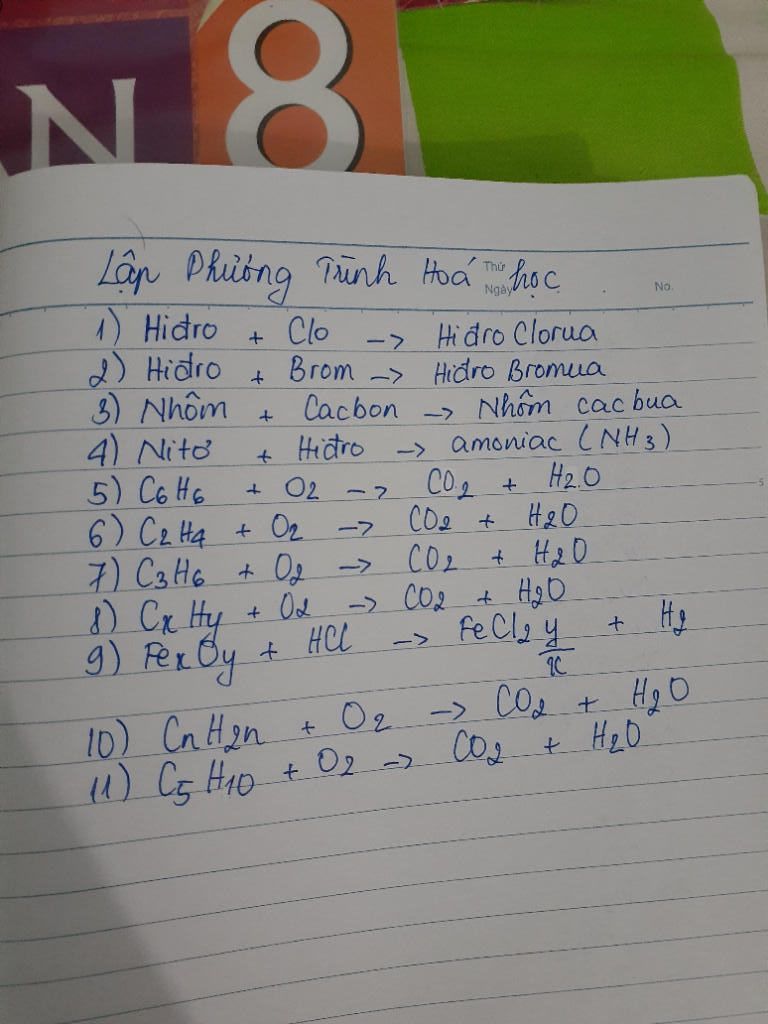 AN 8
Lập Phương Trình Hoá học
Thứ
Ngày
No.
1) Hiđro + Clo -> Hiđro Clorua
2) Hiđro + Brom -> Hiđro Bromua
3) Nhôm + Cacbon -> Nhôm cacbua
4) Nitơ + Hiđro -> amoniac (NH3)
5) C6H6 + O2 -> CO2 + H2O
6) C2H4 + O2 -> CO2 + H2O
7) C3H6 + O2 -> CO2 + H2O
8) CxHy + O2 -> CO2 + H2O
9) FexOy + HCl -> FeCl2y/x + H2
10) CnH2n + O2 -> CO2 + H2O
11) C5H10 + O2 -> CO2 + H2O